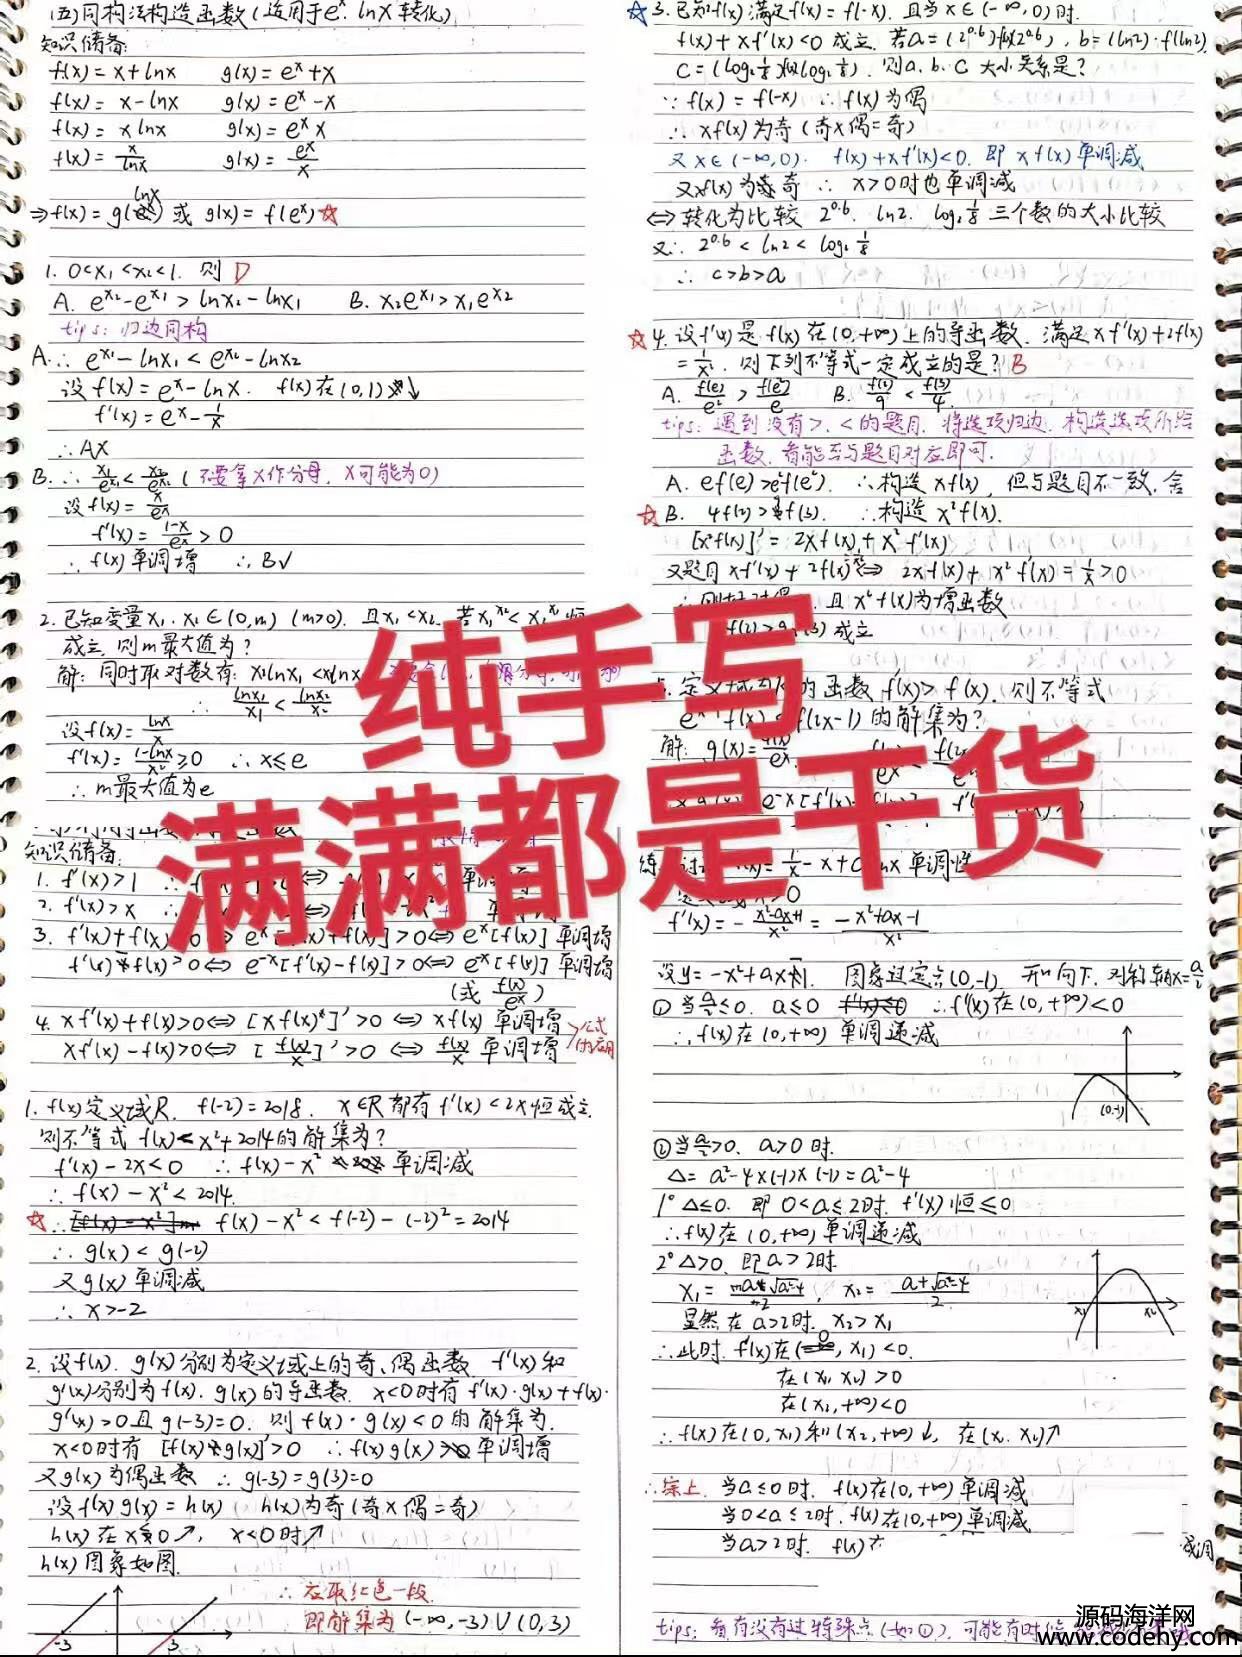 (五)同构法构造函数(适用于eˣ. lnx转化)
知识储备:
f(x)=x+lnx g(x)=eˣ+x
f(x)=x-lnx g(x)=eˣ-x
f(x)=xlnx g(x)=eˣx
f(x)=x/lnx g(x)=eˣ/x
⇒f(x)=g(lnx) 或 g(x)=f(eˣ)☆
1. 0<x₁<x₂<1. 则 D
A. e^x₂-e^x₁>lnx₂-lnx₁ B. x₂e^x₁>x₁e^x₂
tips: 归边同构
A.∴ e^x₁-lnx₁<e^x₂-lnx₂
设f(x)=eˣ-lnx. f(x)在(0,1)↓
f'(x)=eˣ-1/x
∴A×
B.∴ x₁/e^x₁<x₂/e^x₂ (不要拿x作分母, x可能为0)
设f(x)=x/eˣ
f'(x)=(1-x)/eˣ>0
∴f(x)单调增 ∴B√
2. 已知变量x₁.x₂∈(0,m) (m>0). 且x₁<x₂. 若x₁^x₂<x₂^x₁恒
成立,则m最大值为?
解: 同时取对数有: x₂lnx₁<x₁lnx₂
∴ lnx₁/x₁<lnx₂/x₂
设f(x)=lnx/x
f'(x)=(1-lnx)/x²≥0 ∴x≤e
∴m最大值为e
知识储备:
1. f'(x)>1 ∴ 单调
2. f'(x)>x ∴ 单调增
3. f'(x)+f(x)>0⇔eˣ[f'(x)+f(x)]>0⇔eˣ[f(x)]单调增
f'(x)-f(x)>0⇔e⁻ˣ[f'(x)-f(x)]>0⇔e⁻ˣ[f(x)]单调增
(或 f(x)/eˣ)
4. xf'(x)+f(x)>0⇔[xf(x)]'>0⇔xf(x)单调增
xf'(x)-f(x)>0⇔[f(x)/x]'>0⇔f(x)/x单调增 >公式的应用
1. f(x)定义域R. f(-2)=2018. x∈R都有f'(x)<2x恒成立.
则不等式f(x)<x²+2014的解集为?
f'(x)-2x<0 ∴f(x)-x² 单调减
∴f(x)-x²<2014.
☆∴ f(x)-x²<f(-2)-(-2)²=2014
∴g(x)<g(-2)
又g(x)单调减
∴x>-2
2. 设f(x).g(x)分别为定义域上的奇、偶函数 f'(x)和
g'(x)分别为f(x).g(x)的导函数. x<0时有f'(x)·g(x)+f(x)·
g'(x)>0且g(-3)=0. 则f(x)·g(x)<0的解集为.
x<0时有[f(x)g(x)]'>0 ∴f(x)g(x) 单调增
又g(x)为偶函数 ∴g(-3)=g(3)=0
设f(x)g(x)=h(x) h(x)为奇(奇×偶=奇)
h(x)在x>0↗, x<0时↗
h(x)图象如图.
∴应取红色一段.
即解集为(-∞,-3)∪(0,3)
-3 3
☆3. 已知f(x)满足f(x)=f(-x). 且当x∈(-∞,0)时.
f(x)+xf'(x)<0成立. 若a=(2^0.6)·f(2^0.6), b=(ln2)·f(ln2).
c=(log₂1/8)·f(log₂1/8). 则a.b.c大小关系是?
∵f(x)=f(-x) ∴f(x)为偶
∴xf(x)为奇(奇×偶=奇)
又x∈(-∞,0). f(x)+xf'(x)<0. 即xf(x)单调减
又xf(x)为奇 ∴x>0时也单调减
⇔转化为比较 2^0.6. ln2. log₂1/8 三个数的大小比较
又∵2^0.6<ln2<log₂1/8
∴c>b>a
☆4. 设f'(x)是f(x)在(0,+∞)上的导函数. 满足xf'(x)+2f(x)
=1/x². 则下列不等式一定成立的是? B
A. f(e)/e²>f(e²)/e B. f(2)/9<f(3)/4
tips: 遇到没有>、<的题目. 将选项归边. 构造选项所给
函数. 看能否与题目对应即可.
A. ef(e)>e²f(e²). ∴构造xf(x), 但与题目不一致.舍
☆B. 4f(2)>9f(3). ∴构造x²f(x).
[x²f(x)]'=2xf(x)+x²f'(x)
又题目xf'(x)+2f(x)⇔2xf(x)+x²f'(x)=1/x>0
且x²f(x)为增函数
成立
纯手写
满满都是干货
5. 定义域为R的函数f'(x)>f(x). 则不等式
f(2x-1)的解集为?
解: g(x)=f(x)/eˣ
-x+alnx单调性
f'(x)=-(x²-ax+1)/x²=(-x²+ax-1)/x²
设y=-x²+ax-1. 图象过定点(0,-1). 开口向下. 对称轴x=a/2
①当a/2≤0. a≤0 ∴f'(x)在(0,+∞)<0
∴f(x)在(0,+∞)单调递减
(0,-1)
②当a/2>0. a>0时.
Δ=a²-4×(-1)×(-1)=a²-4
1° Δ≤0. 即0<a≤2时. f'(x)恒≤0
∴f(x)在(0,+∞)单调递减
2° Δ>0. 即a>2时.
x₂=(a+√(a²-4))/2
显然在a>2时. x₂>x₁
x₁ x₂
∴此时. f'(x)在(0,x₁)<0.
在(x₁,x₂)>0
在(x₂,+∞)<0
∴f(x)在(0,x₁)和(x₂,+∞)↓, 在(x₁,x₂)↗
∴综上. 当a≤0时. f(x)在(0,+∞)单调减
当0<a≤2时. f(x)在(0,+∞)单调减
当a>2时. f(x)在
tips: 看有没有过特殊点(如①). 可能有时候
源码海洋网
www.codehy.com